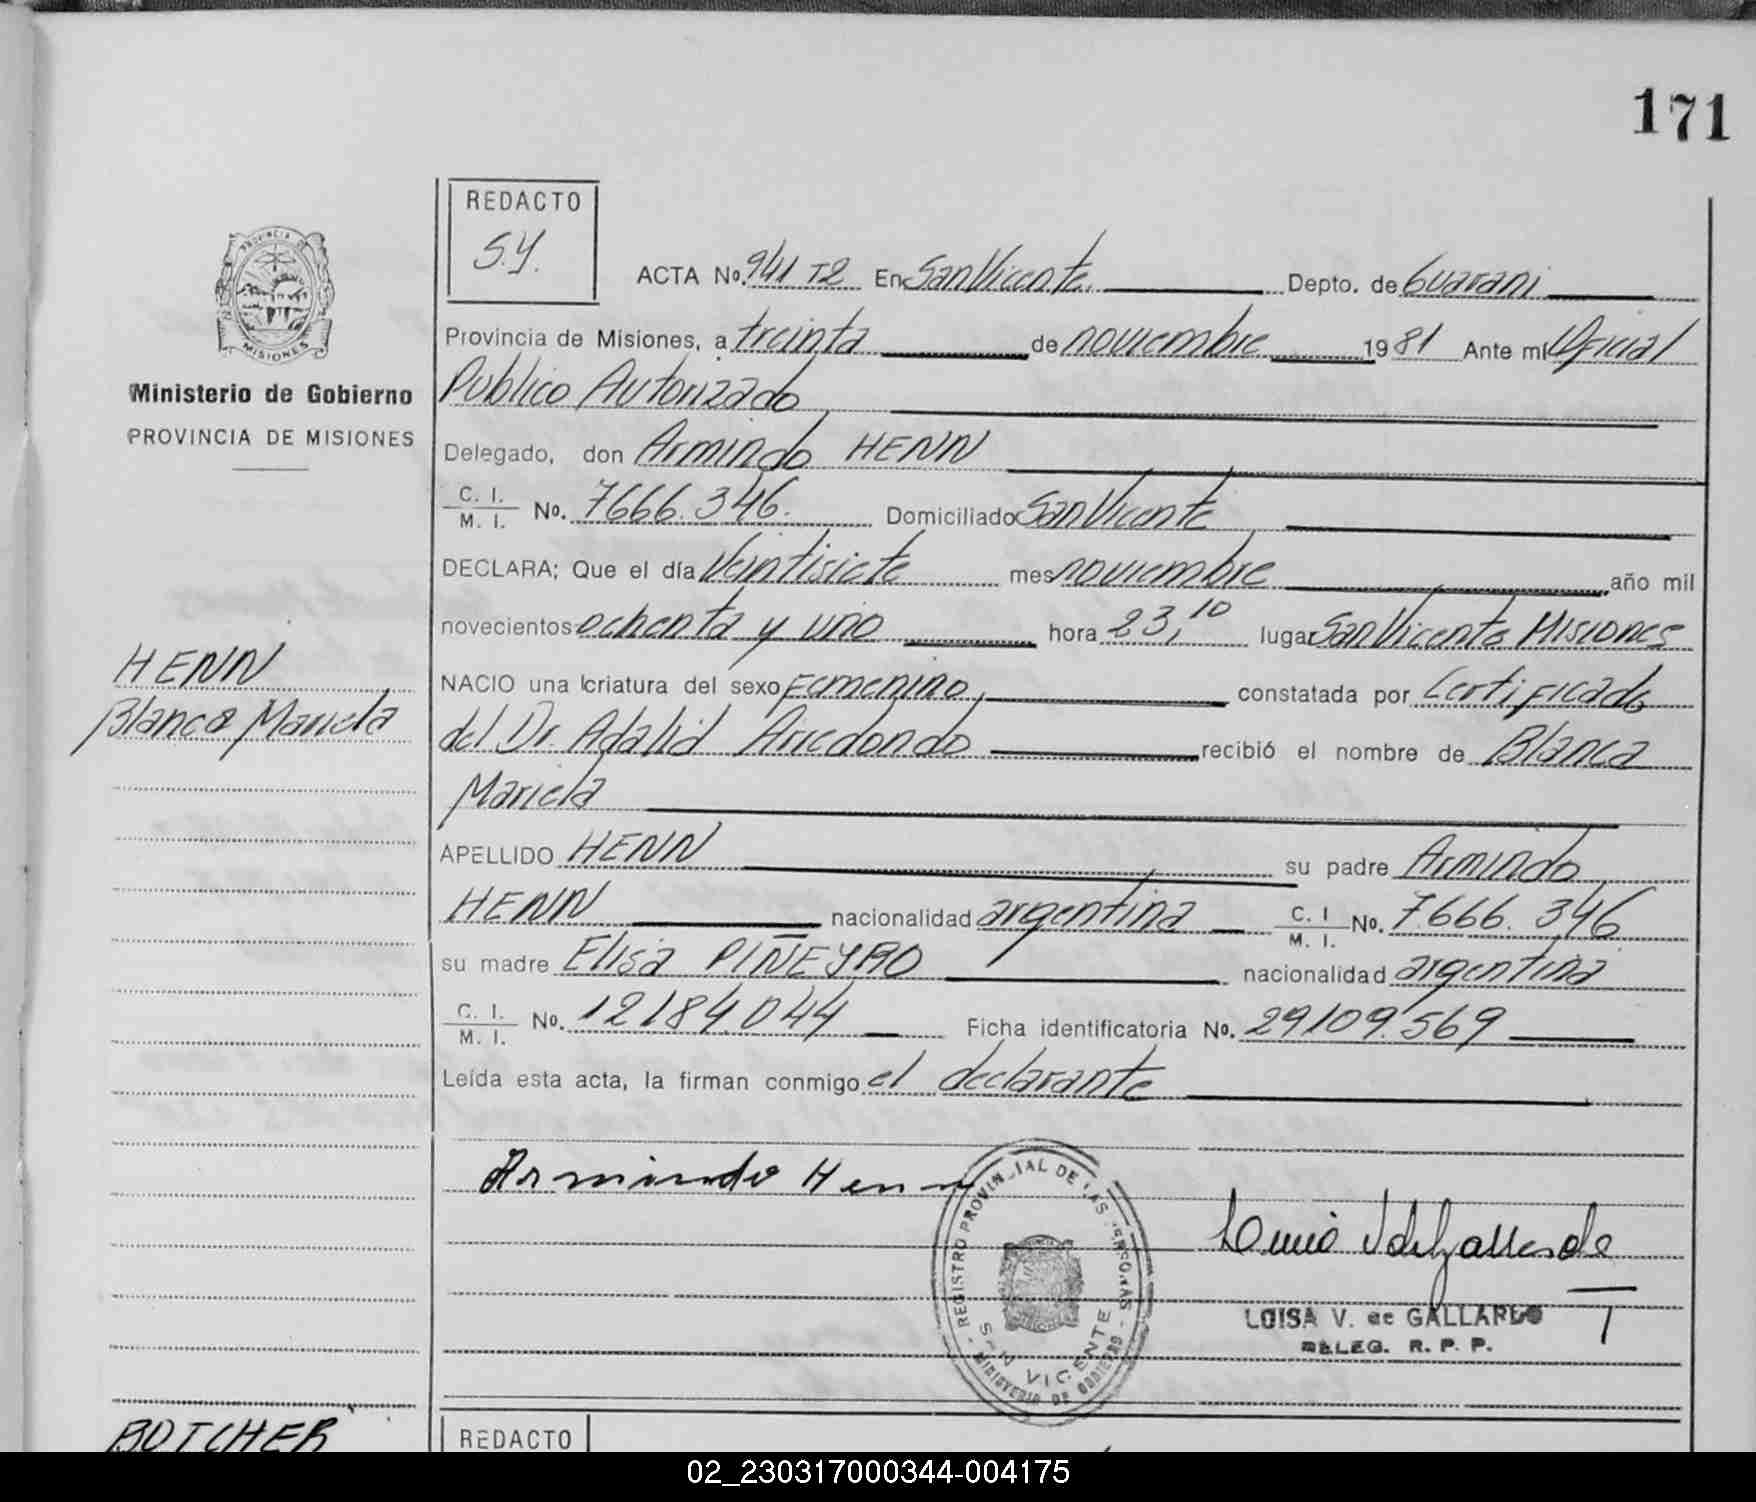 171
REDACTO
S.Y.
ACTA No. 941 T2 En San Vicente Depto. de Guarani
Provincia de Misiones, a treinta de noviembre 19 81 Ante mí Oficial
Publico Autorizado
Ministerio de Gobierno
PROVINCIA DE MISIONES
Delegado, don Armindo HENN
C. I.
M. I. No. 7666.346. Domiciliado San Vicente
DECLARA; Que el día Veintisiete mes noviembre año mil
novecientos ochenta y uno hora 23,10 lugar San Vicente Misiones
HENN
Blanca Mariela
NACIO una criatura del sexo Femenino, constatada por Certificado
del Dr. Adalid Arredondo recibió el nombre de Blanca
Mariela
APELLIDO HENN su padre Armindo
HENN nacionalidad argentina C. I
M. I. No. 7.666.346
su madre Elisa PIÑEYRO nacionalidad argentina
C. I.
M. I. No. 12184.044 Ficha identificatoria No. 29109.569
Leída esta acta, la firman conmigo el declarante
Armindo Henn
REGISTRO PROVINCIAL DE LAS PERSONAS
SAN VICENTE
MINISTERIO DE GOBIERNO
LUISA V. de GALLARDO
DELEG. R. P. P.
BOTCHER
REDACTO
02_230317000344-004175